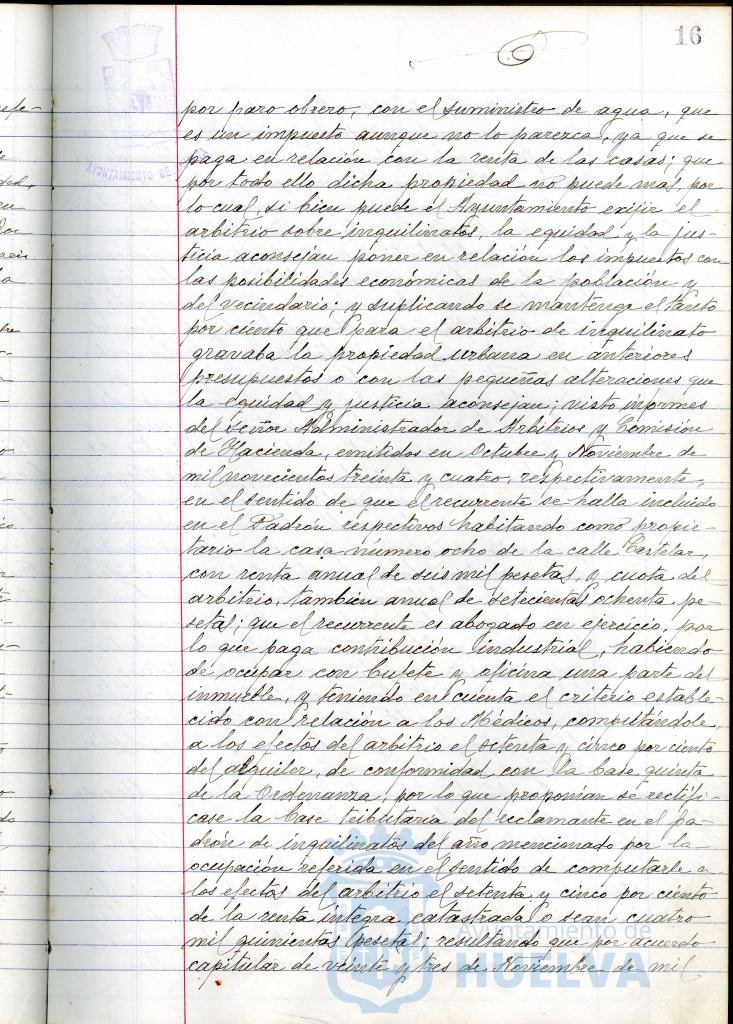 16
por paro obrero, con el suministro de agua, que
es un impuesto aunque no lo parezca, ya que se
paga en relación con la renta de las casas; que
por todo ello dicha propiedad no puede mas, por
lo cual, si bien puede el Ayuntamiento exijir el
arbitrio sobre inquilinatos, la equidad y la jus-
ticia aconsejan poner en relación los impuestos con
las posibilidades económicas de la población y
del vecindario; y suplicando se mantenga el tanto
por ciento que para el arbitrio de inquilinato
gravaba la propiedad urbana en anteriores
presupuestos o con las pequeñas alteraciones que
la equidad y justicia aconsejan; visto informes
del señor Administrador de Arbitrios y Comisión
de Hacienda, emitidos en Octubre y Noviembre de
mil novecientos treinta y cuatro, respectivamente,
en el sentido de que el recurrente se halla incluido
en el Padrón respectivos habitando como propie-
tario la casa número ocho de la calle Castelar,
con renta anual de seis mil pesetas, y cuota del
arbitrio, tambien anual de setecientas ochenta pe-
setas; que el recurrente es abogado en ejercicio, por
lo que paga contribución industrial, habiendo
de ocupar con bufete y oficina una parte del
inmueble, y teniendo en cuenta el criterio estable-
cido con relación a los Médicos, computándole,
a los efectos del arbitrio el setenta y cinco por ciento
del alquiler, de conformidad con la base quinta
de la Ordenanza, por lo que proponían se rectifi-
case la base tributaria del reclamante en el pa-
drón de inquilinatos del año mencionado por la
ocupación referida en el sentido de computarle a
los efectos del arbitrio el setenta y cinco por ciento
de la renta integra catastrada o sean cuatro
mil quinientas pesetas; resultando que por acuerdo
capitular de veinte y tres de Noviembre de mil
AYUNTAMIENTO DE
Ayuntamiento de
HUELVA